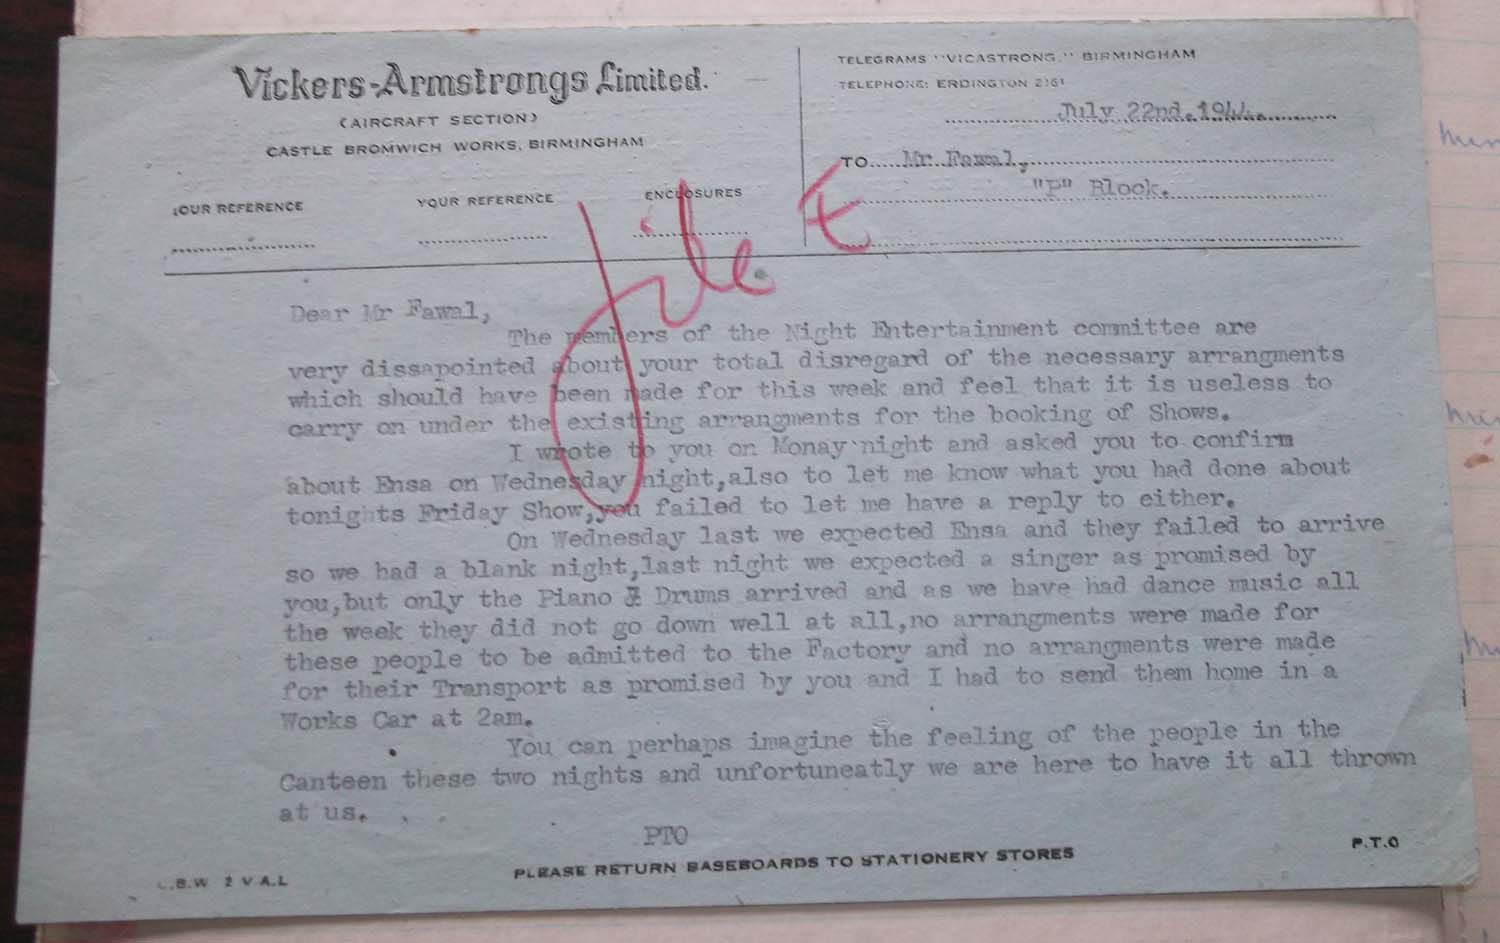 Vickers-Armstrongs Limited.
(AIRCRAFT SECTION)
CASTLE BROMWICH WORKS, BIRMINGHAM
TELEGRAMS "VICASTRONG," BIRMINGHAM
TELEPHONE: ERDINGTON 2161
July 22nd. 1944.
TO Mr. Fawal,
"P" Block.
OUR REFERENCE
YOUR REFERENCE
ENCLOSURES
file
Dear Mr Fawal,
The members of the Night Entertainment committee are
very dissapointed about your total disregard of the necessary arrangments
which should have been made for this week and feel that it is useless to
carry on under the existing arrangments for the booking of Shows.
I wrote to you on Monay night and asked you to confirm
about Ensa on Wednesday night,also to let me know what you had done about
tonights Friday Show,you failed to let me have a reply to either.
On Wednesday last we expected Ensa and they failed to arrive
so we had a blank night,last night we expected a singer as promised by
you,but only the Piano & Drums arrived and as we have had dance music all
the week they did not go down well at all,no arrangments were made for
these people to be admitted to the Factory and no arrangments were made
for their Transport as promised by you and I had to send them home in a
Works Car at 2am.
You can perhaps imagine the feeling of the people in the
Canteen these two nights and unfortuneatly we are here to have it all thrown
at us.
PTO
P.T.O
PLEASE RETURN BASEBOARDS TO STATIONERY STORES
C.B.W 2 V A.L